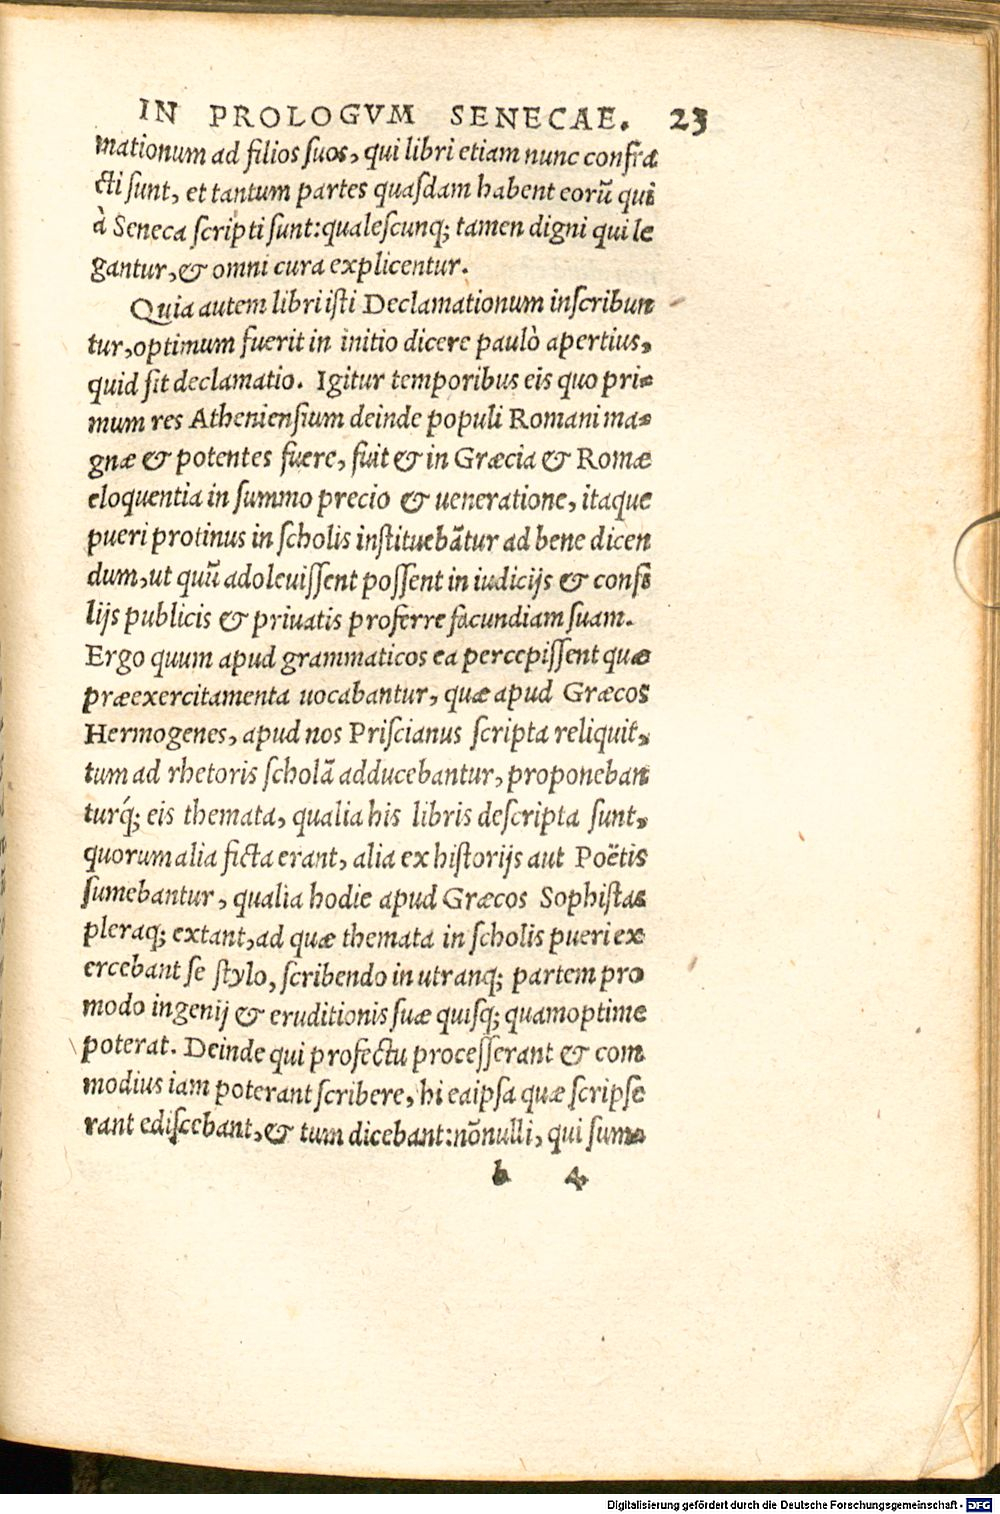 IN PROLOGVM SENECAE. 23
mationum ad filios ſuos, qui libri etiam nunc confra
cti ſunt, et tantum partes quaſdam habent eorũ qui
à Seneca ſcripti ſunt: qualeſcunq; tamen digni qui le
gantur, & omni cura explicentur.
Quia autem libri iſti Declamationum inſcribun
tur, optimum fuerit in initio dicere paulò apertius,
quid ſit declamatio. Igitur temporibus eis quo pri-
mum res Athenienſium deinde populi Romani ma-
gnæ & potentes fuere, fuit & in Græcia & Romæ
eloquentia in ſummo precio & ueneratione, itaque
pueri protinus in ſcholis inſtituebãtur ad bene dicen
dum, ut quũ adoleuiſſent poſſent in iudicijs & conſi
lijs publicis & priuatis proferre facundiam ſuam.
Ergo quum apud grammaticos ea percepiſſent quæ
præexercitamenta uocabantur, quæ apud Græcos
Hermogenes, apud nos Priſcianus ſcripta reliquit,
tum ad rhetoris ſcholã adducebantur, proponeban
turq́; eis themata, qualia his libris deſcripta ſunt,
quorum alia ficta erant, alia ex hiſtorijs aut Poëtis
ſumebantur, qualia hodie apud Græcos Sophiſtas
pleraq; extant, ad quæ themata in ſcholis pueri ex
ercebant ſe ſtylo, ſcribendo in utranq; partem pro
modo ingenij & eruditionis ſuæ quiſq; quamoptime
poterat. Deinde qui profectu proceſſerant & com
modius iam poterant ſcribere, hi ea ipſa quæ ſcripſe
rant ediſcebant, & tum dicebant: nõnulli, qui ſum
b 4
Digitalisierung gefördert durch die Deutsche Forschungsgemeinschaft - DFG